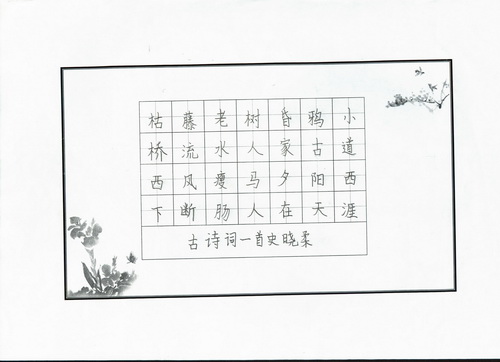 枯藤老树昏鸦小
桥流水人家古道
西风瘦马夕阳西
下断肠人在天涯
古诗词一首史晓柔